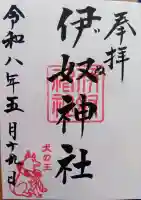 奉拝
伊奴神社
いぬ
令和八年五月十九日
犬の王